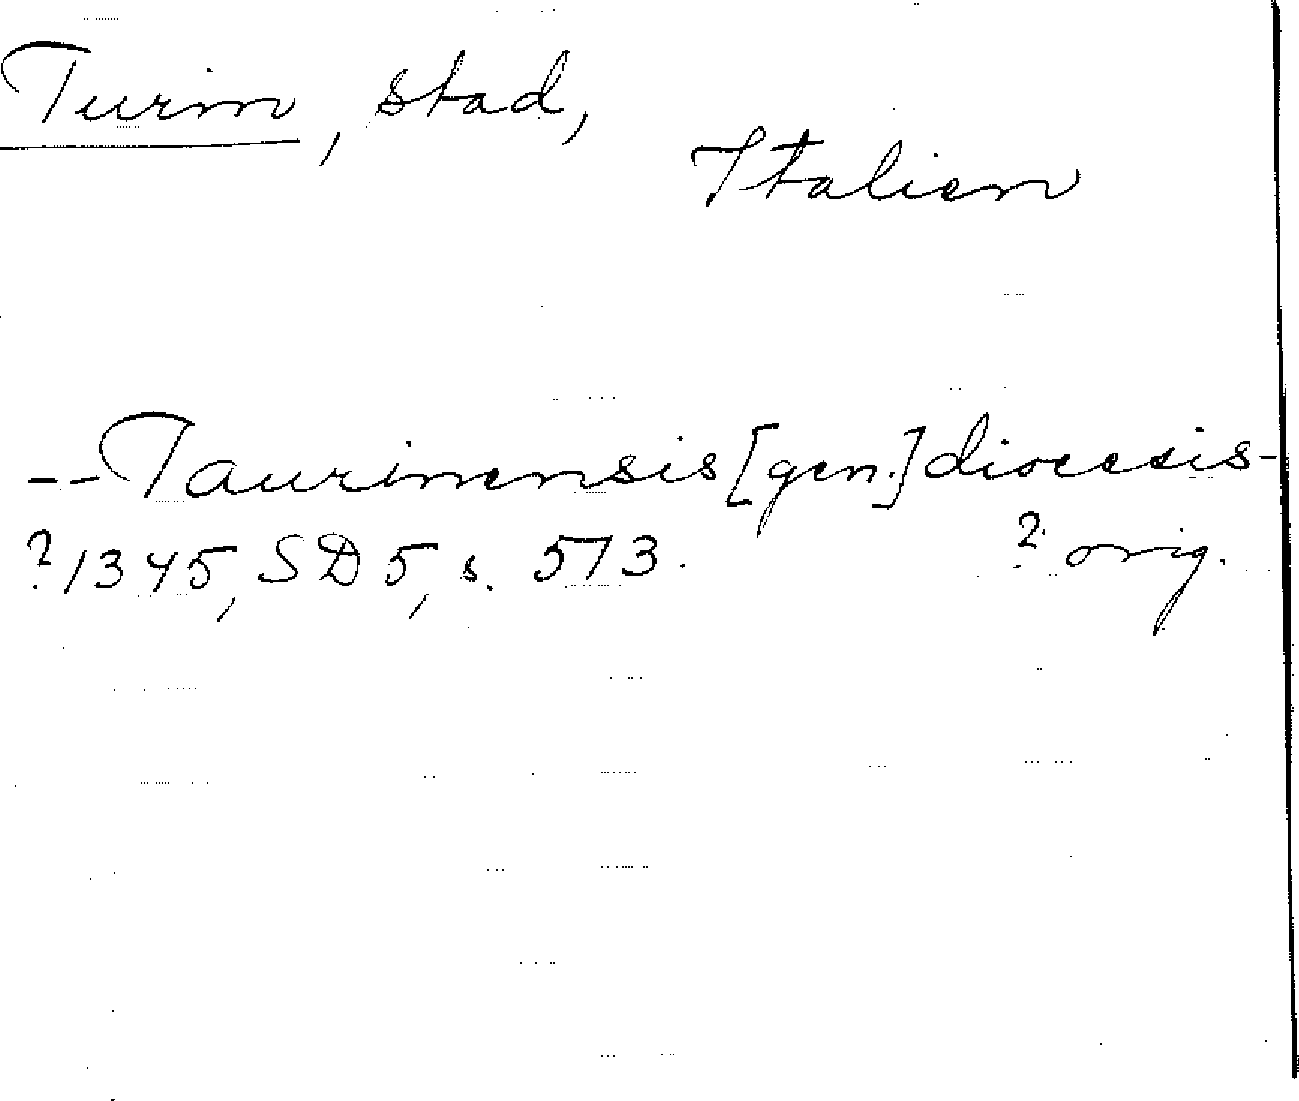 Turin, stad,
Italien
--Taurinensis [gen.] diocesis-
? 1345, SD 5, s. 573. ? orig.